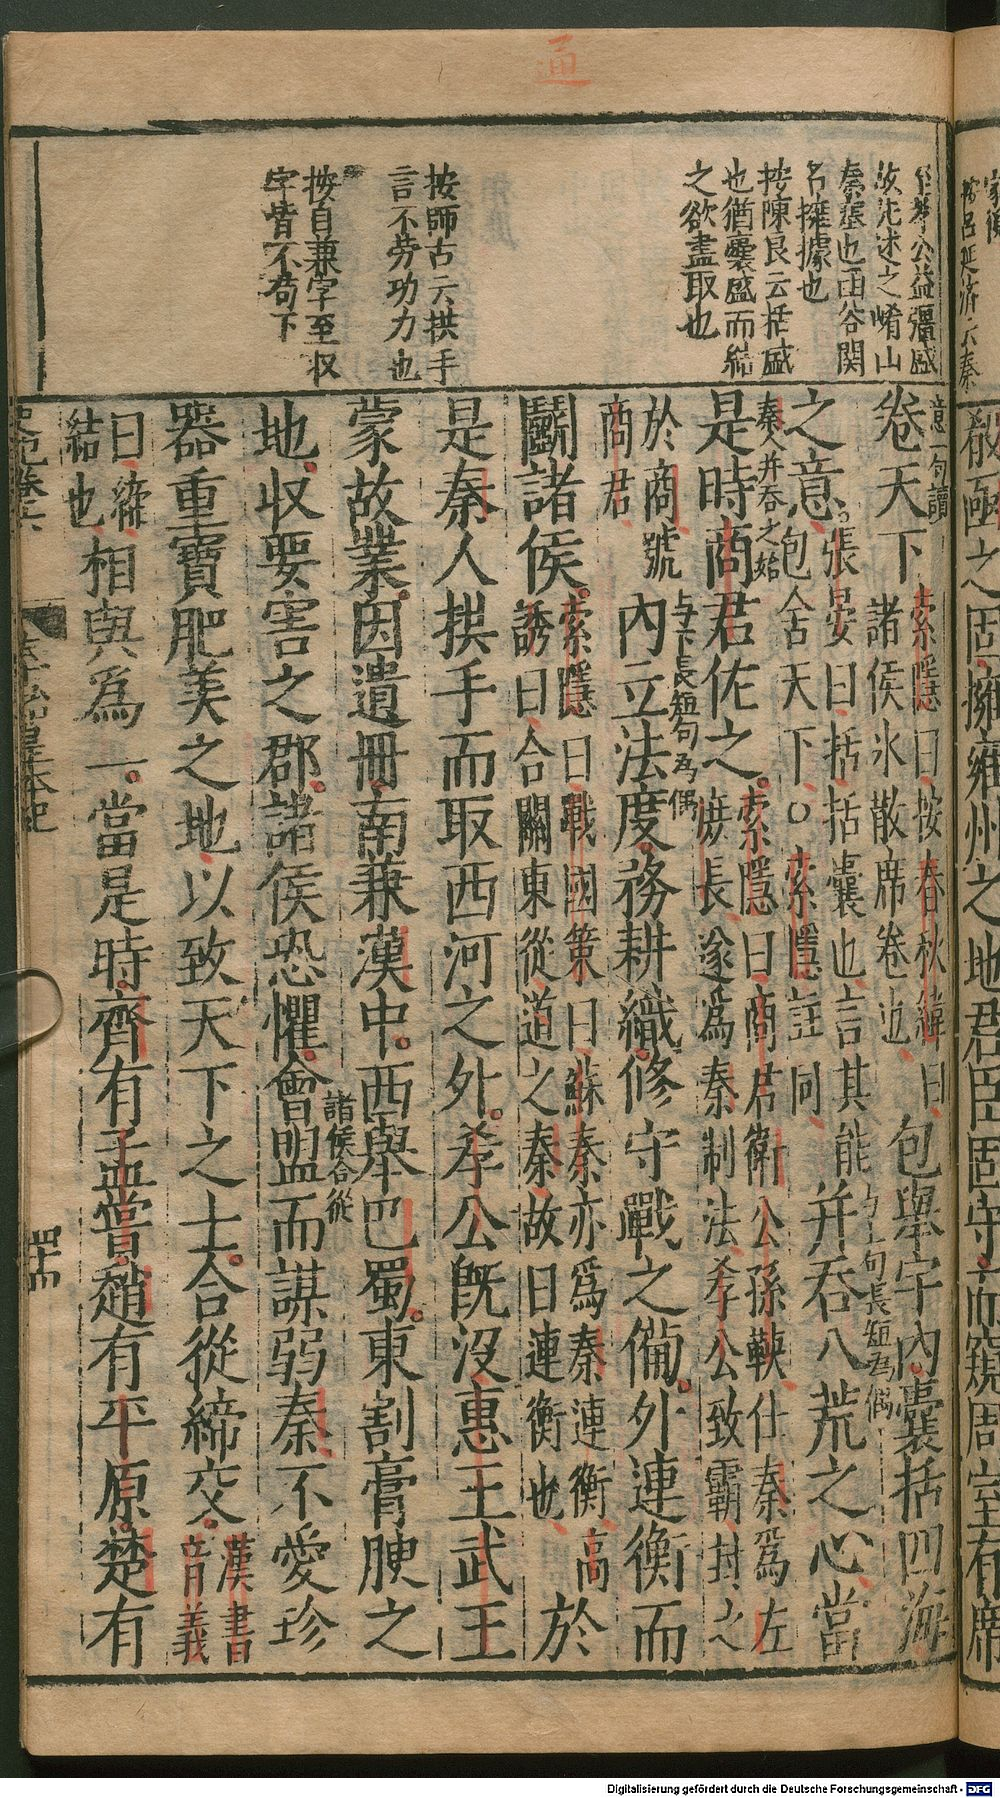 通
自孝公益彊盛
故先述之崤山
秦塞也函谷関
名擁據也
按陳良云括盛
也猶囊盛而結
之欲盡取也
按師古云拱手
言不勞功力也
按自兼字至収
字皆不句下
意一句讀
卷天下
索隱曰按春秋緯曰
諸侯氷散席卷也
包舉宇內囊括四海
之意
張晏曰括括囊也言其能
包含天下○索隱註同
与上句長短為偶
并吞八荒之心當
秦人并吞之始
是時商君佐之
索隱曰商君衛公孫鞅仕秦為左
庶長遂為秦制法孝公致霸封之
於商號
商君
与下長短句為偶
內立法度務耕織修守戰之備外連衡而
鬭諸侯
索隱曰戰國策曰蘇秦亦為秦連衡高
誘曰合關東從道之秦故曰連衡也
於
是秦人拱手而取西河之外孝公旣没惠王武王
蒙故業因遺冊南兼漢中西舉巴蜀東割膏腴之
地収要害之郡諸侯恐懼會盟而謀弱秦不愛珍
諸侯合從
器重寶肥美之地以致天下之士合從締交
漢書
音義
曰締
結也
相與為一當是時齊有孟嘗趙有平原楚有
秦始皇本紀
殽函之固擁雍州之地君臣固守而窺周室有席
按呂延濟云秦
Digitalisierung gefördert durch die Deutsche Forschungsgemeinschaft - DFG